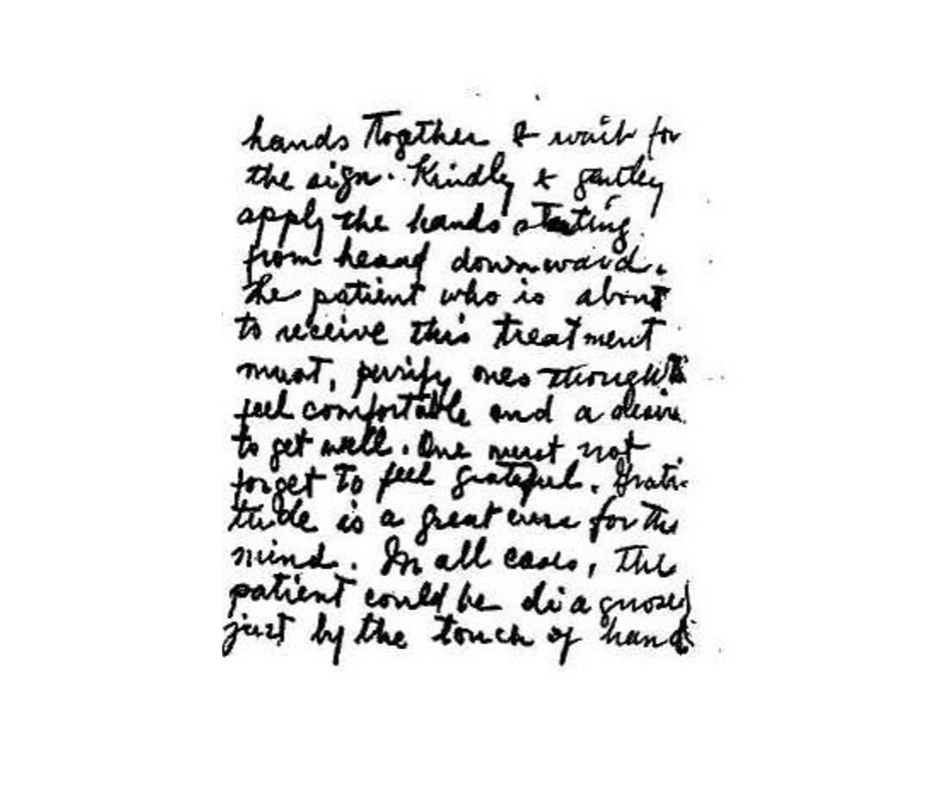 hands Together & wait for
the sign. Kindly & gentley
apply the hands starting
from heaad downward.
The patient who is about
to receive this treatment
must, purify ones thoughts
feel comfortable and a desire
to get well. One must not
forget to feel grateful. Grati-
tude is a great cure for the
mind. In all cases, the
patient could be diagnosed
just by the touch of hand